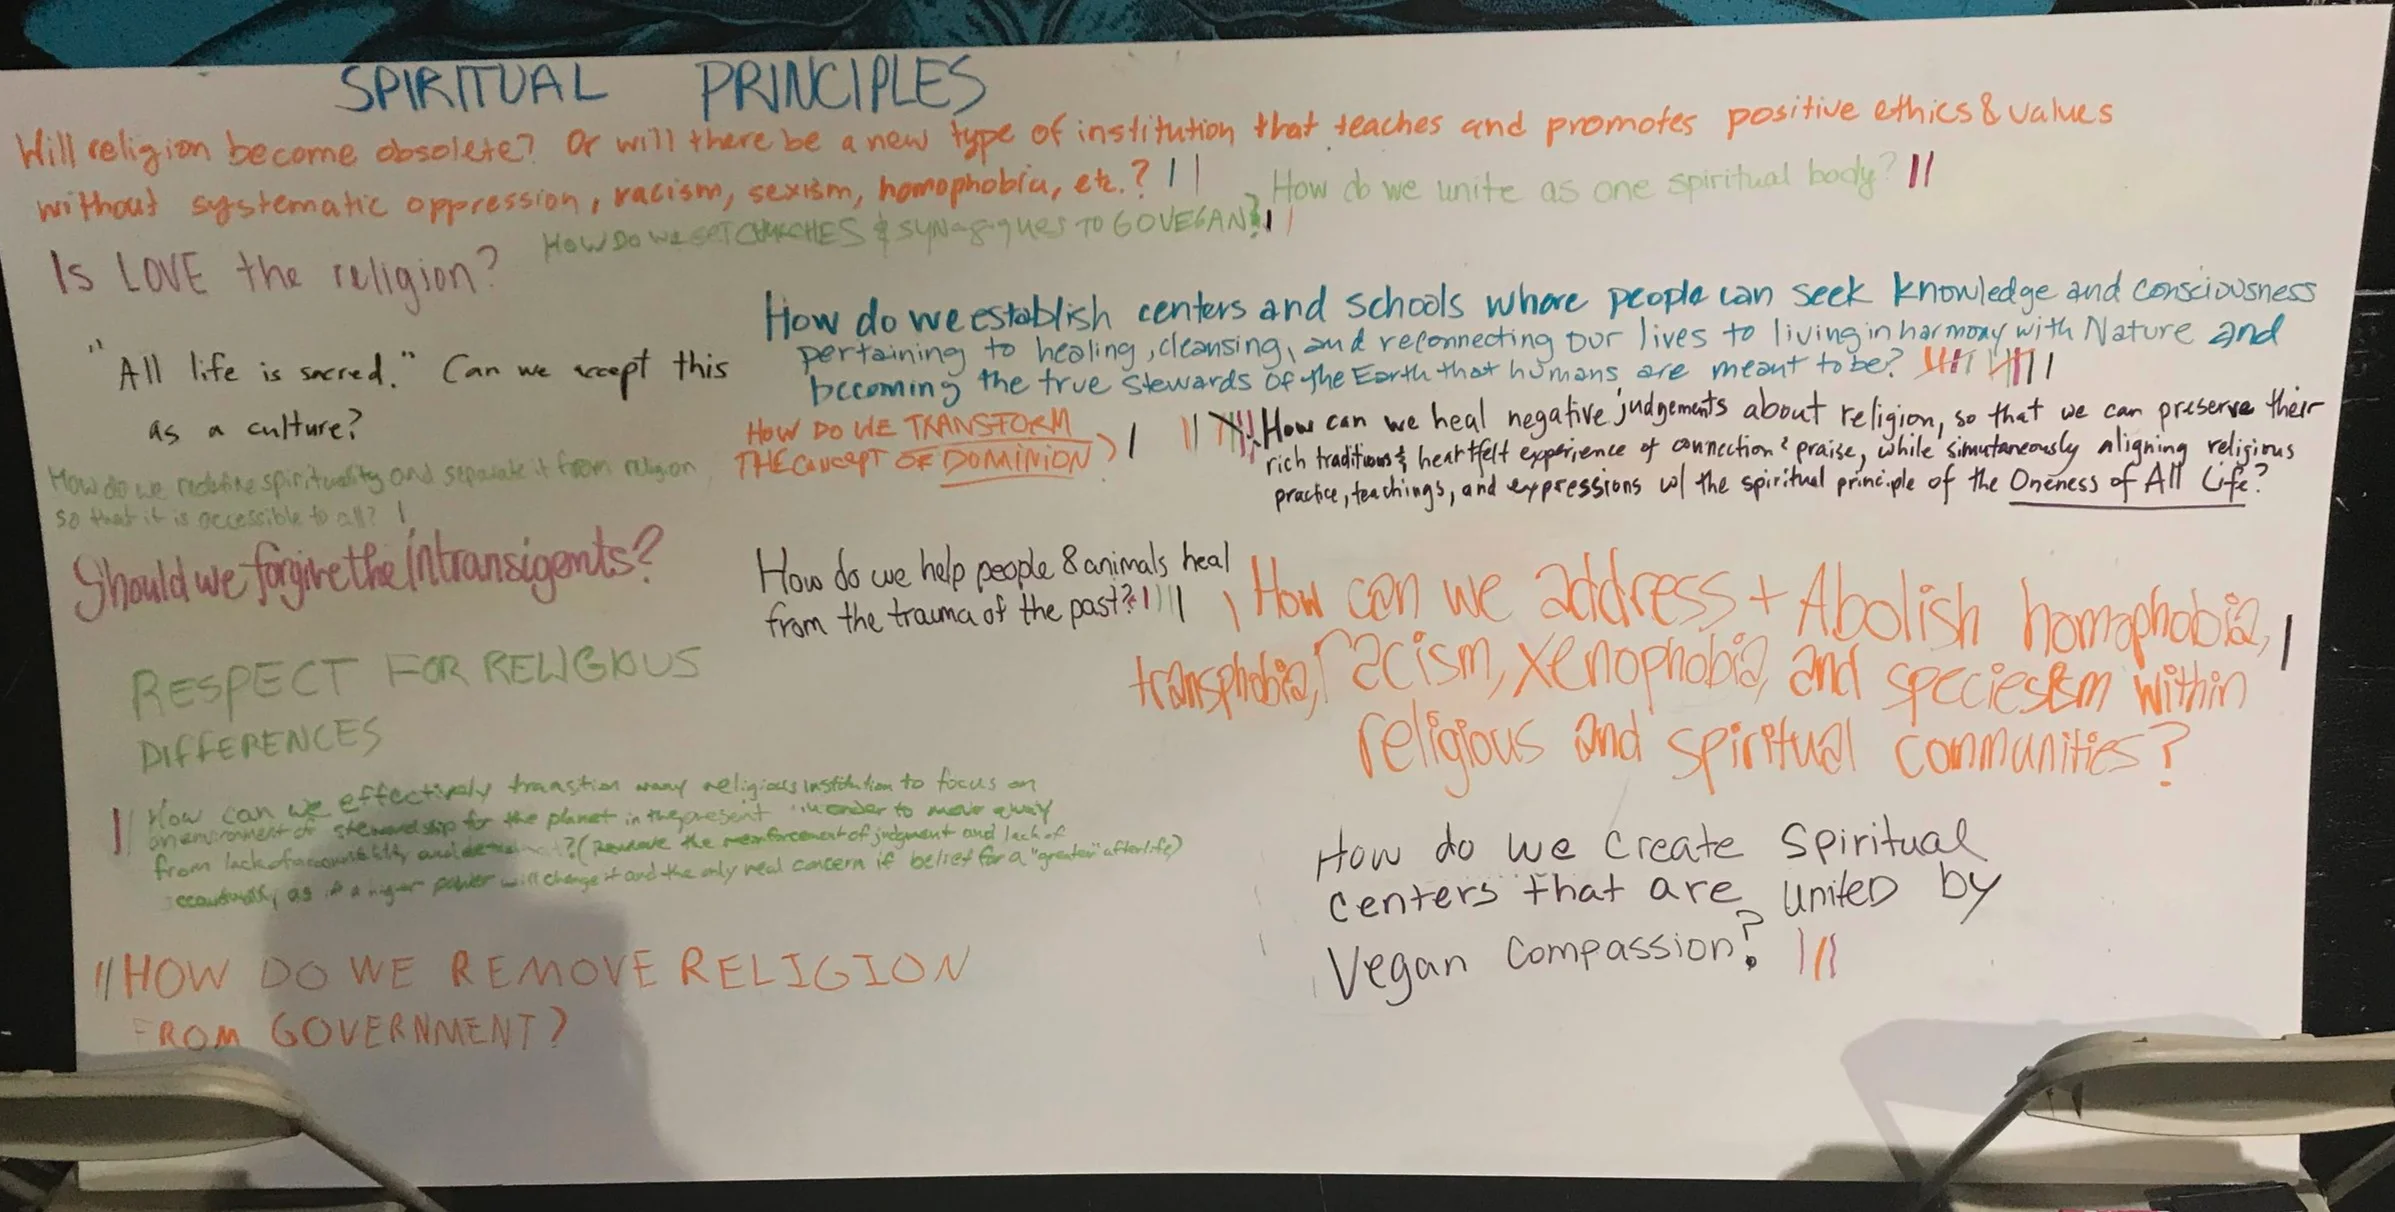 SPIRITUAL PRINCIPLES
Will religion become obsolete? Or will there be a new type of institution that teaches and promotes positive ethics & values
without systematic oppression, racism, sexism, homophobia, etc.?
How do we unite as one spiritual body?
HOW DO WE GET CHURCHES & SYNagogues TO GO VEGAN?
Is LOVE the religion?
How do we establish centers and schools where people can seek knowledge and consciousness
pertaining to healing, cleansing, and reconnecting our lives to living in harmony with Nature and
becoming the true stewards of the Earth that humans are meant to be?
"All life is sacred." Can we accept this
as a culture?
HOW DO WE TRANSFORM
THE CONCEPT OF DOMINION
How can we heal negative judgements about religion, so that we can preserve their
rich traditions & heartfelt experience of connection & praise, while simutaneously aligning religious
practice, teachings, and expressions w/ the spiritual principle of the Oneness of All Life?
How do we redefine spirituality and separate it from religion
so that it is accessible to all?
Should we forgive the intransigents?
How do we help people & animals heal
from the trauma of the past?
How can we address + Abolish homophobia,
transphobia, racism, xenophobia, and speciesism within
religious and spiritual communities?
RESPECT FOR RELIGIOUS
DIFFERENCES
How can we effectively transtion many religious institution to focus on
an environment of stewardship for the planet in the present in order to move away
from lack of accountability and ? (Remove the reinforcement of judgment and lack of
as if a higher power will change it and the only real concern if belief for a "greater" afterlife)
HOW DO WE REMOVE RELIGION
FROM GOVERNMENT?
How do we create Spiritual
centers that are united by
Vegan Compassion?